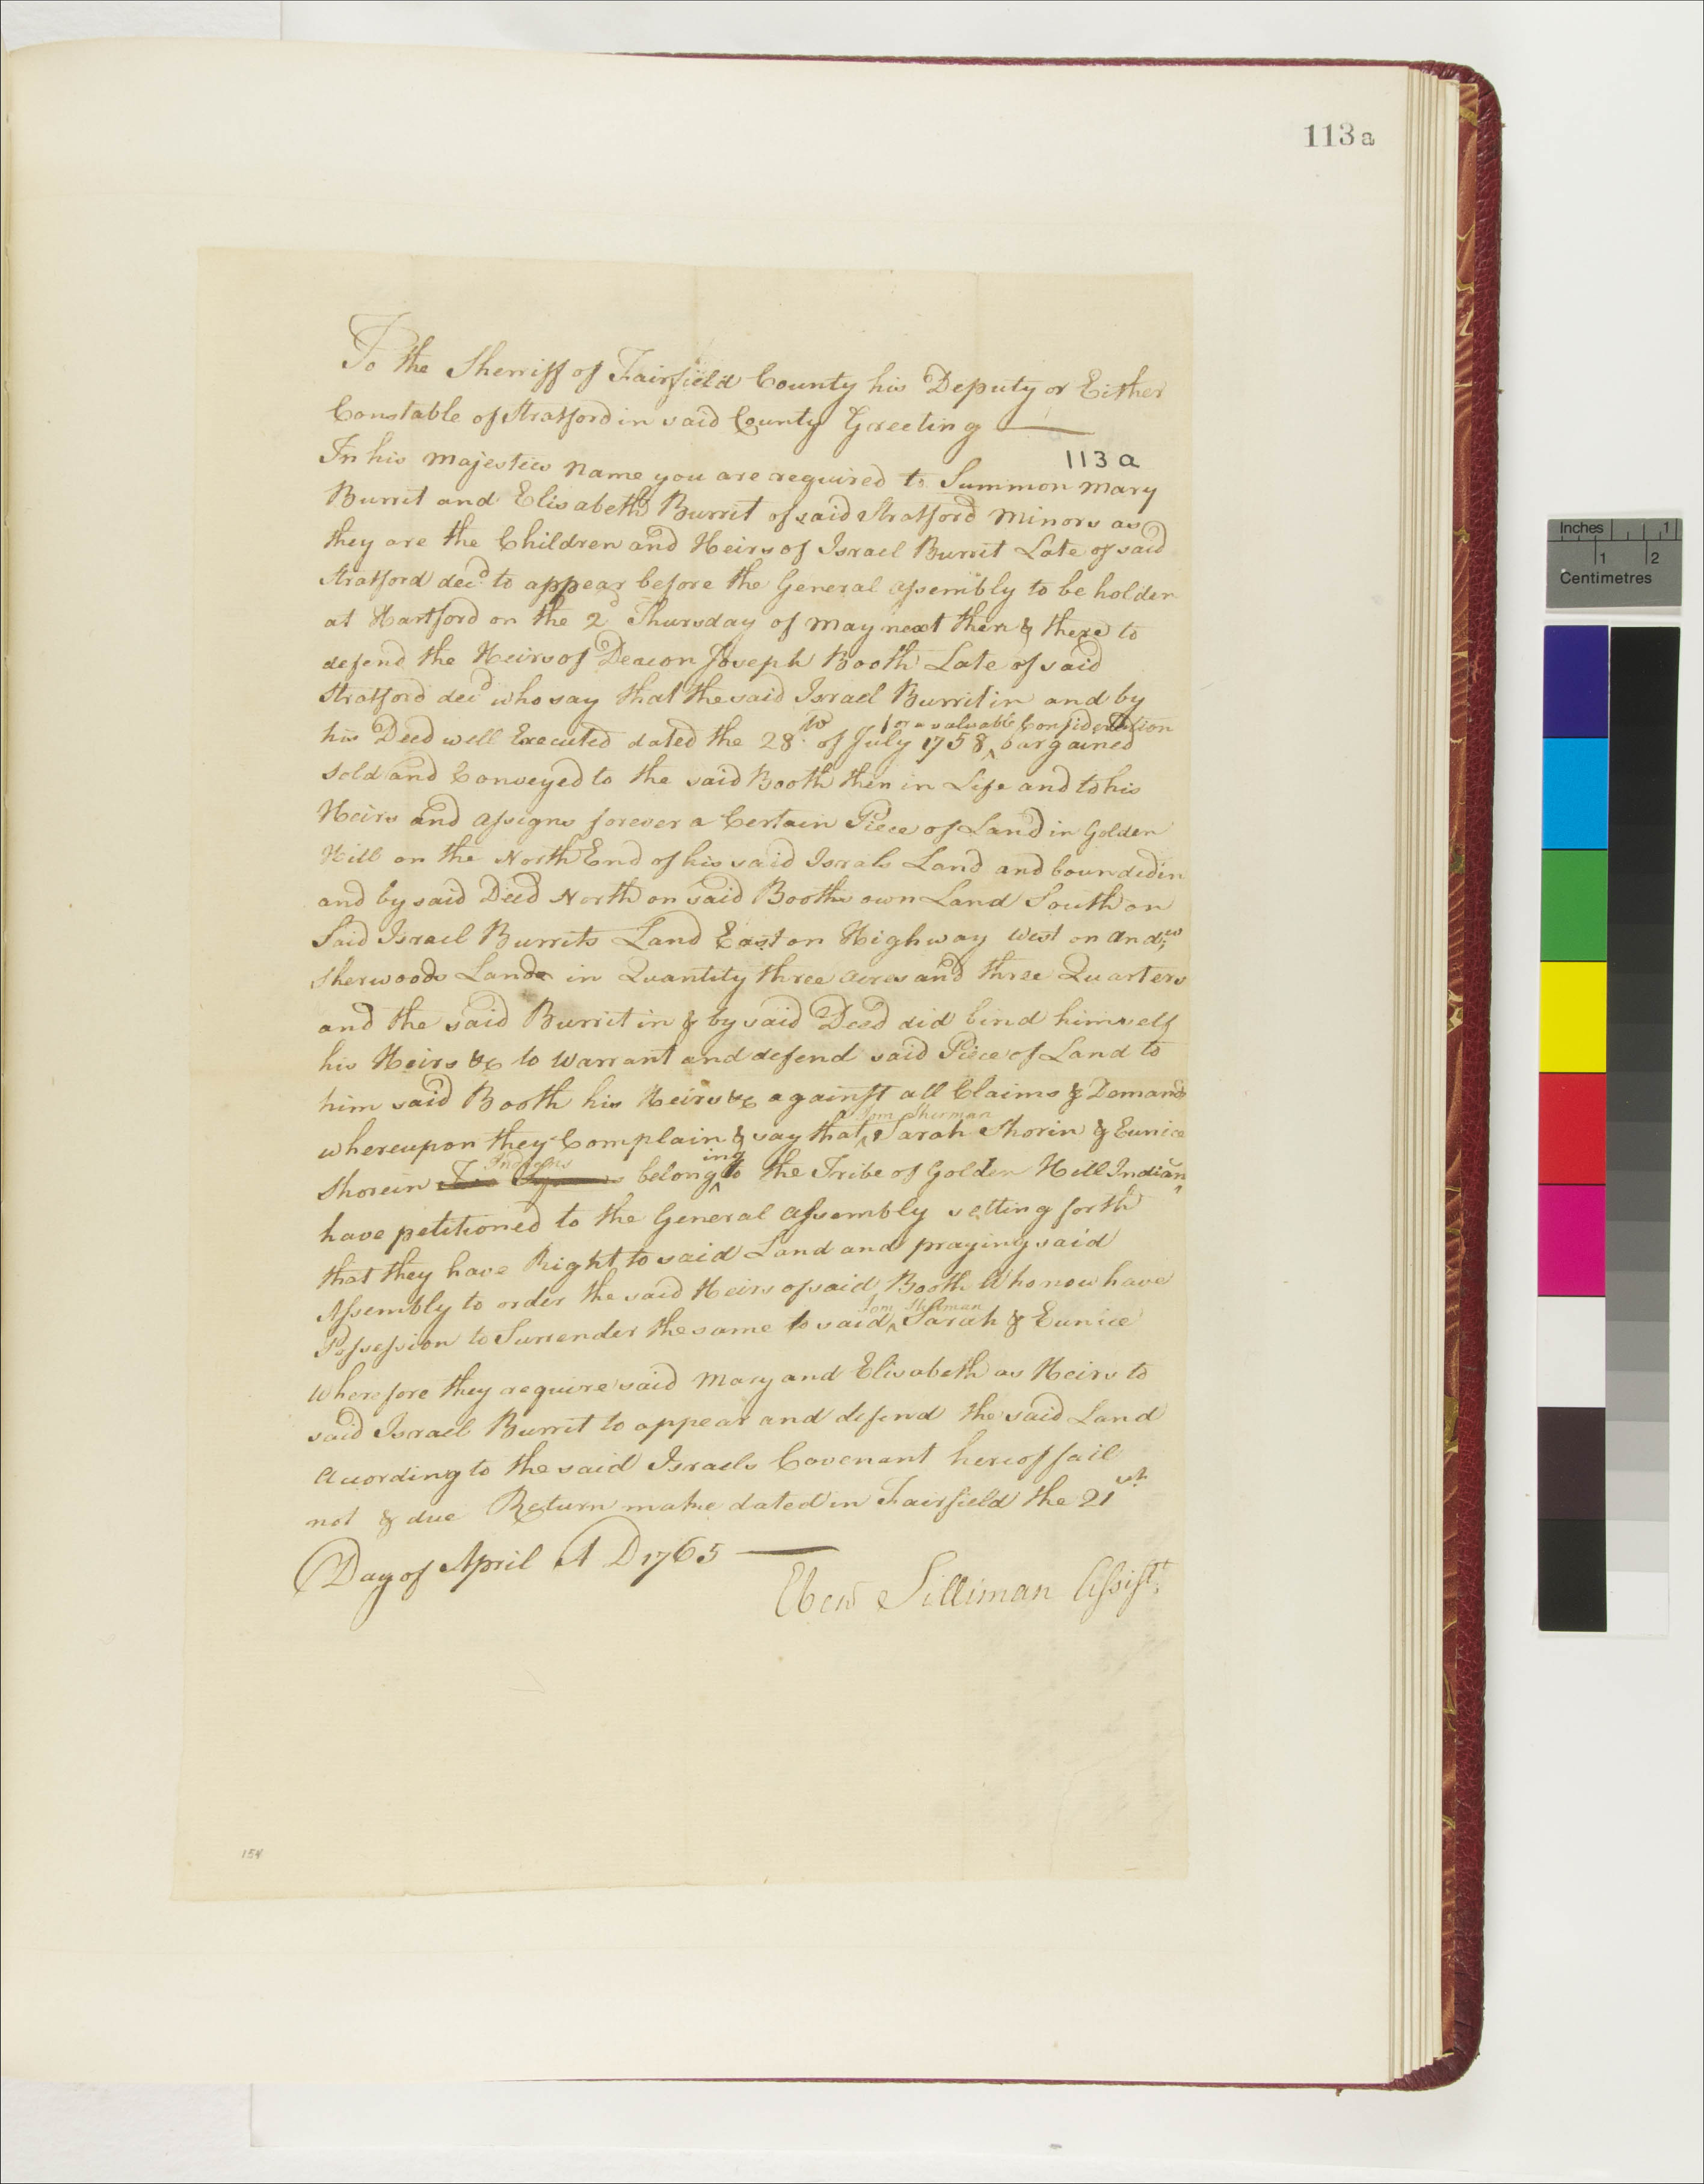 113 a
To the Sherriff of Fairfield County his Deputy or Either
Constable of Stratford in said County Greeting
113 a
In his Majesties Name you are required to Summon Mary
Burrit and Elisabeth Burrit of said Stratford Minors as
they are the Children and Heirs of Israel Burrit Late of said
Stratford decd to appear before the General Assembly to be holden
at Hartford on the 2d Thursday of May next then & there to
defend the Heirs of Deacon Joseph Booth Late of said
Stratford decd who say that the said Israel Burrit in and by
for a valuable Consideration
his Deed well Executed dated the 28th of July 1758 ^ bargained
sold and Conveyed to the said Booth then in Life and to his
Heirs and assigns forever a Certain Piece of Land in Golden
Hill on the North End of his said Israls Land and bounded in
and by said Deed North on said Booths own Land South on
Said Israel Burrits Land East on Highway West on Andw
Sherwoods Land in Quantity three acres and three Quarters
and the said Burrit in & by said Deed did bind himself
his Heirs &c to Warrant and defend said Piece of Land to
him said Booth his Heirs &c against all Claims & Demands
Tom Sherman
whereupon they Complain & say that ^ Sarah Shorin & Eunice
Indians ing
Shorein belong ^ to the Tribe of Golden Hill Indian
have petitioned to the General Assembly setting forth
that they have Right to said Land and praying said
Assembly to order the said Heirs of said Booth Who now have
Tom Sherman
Possession to Surrender the same to said ^ Sarah & Eunice
Wherefore they require said Mary and Elisabeth as Heirs to
said Israel Burrit to appear and defend the said Land
Acording to the said Israels Covenant hereof fail
not & due Return make dated in Fairfield the 21st
Day of April A D 1765
Ebenr Silliman Assist.
154
Inches 1
1 2
Centimetres